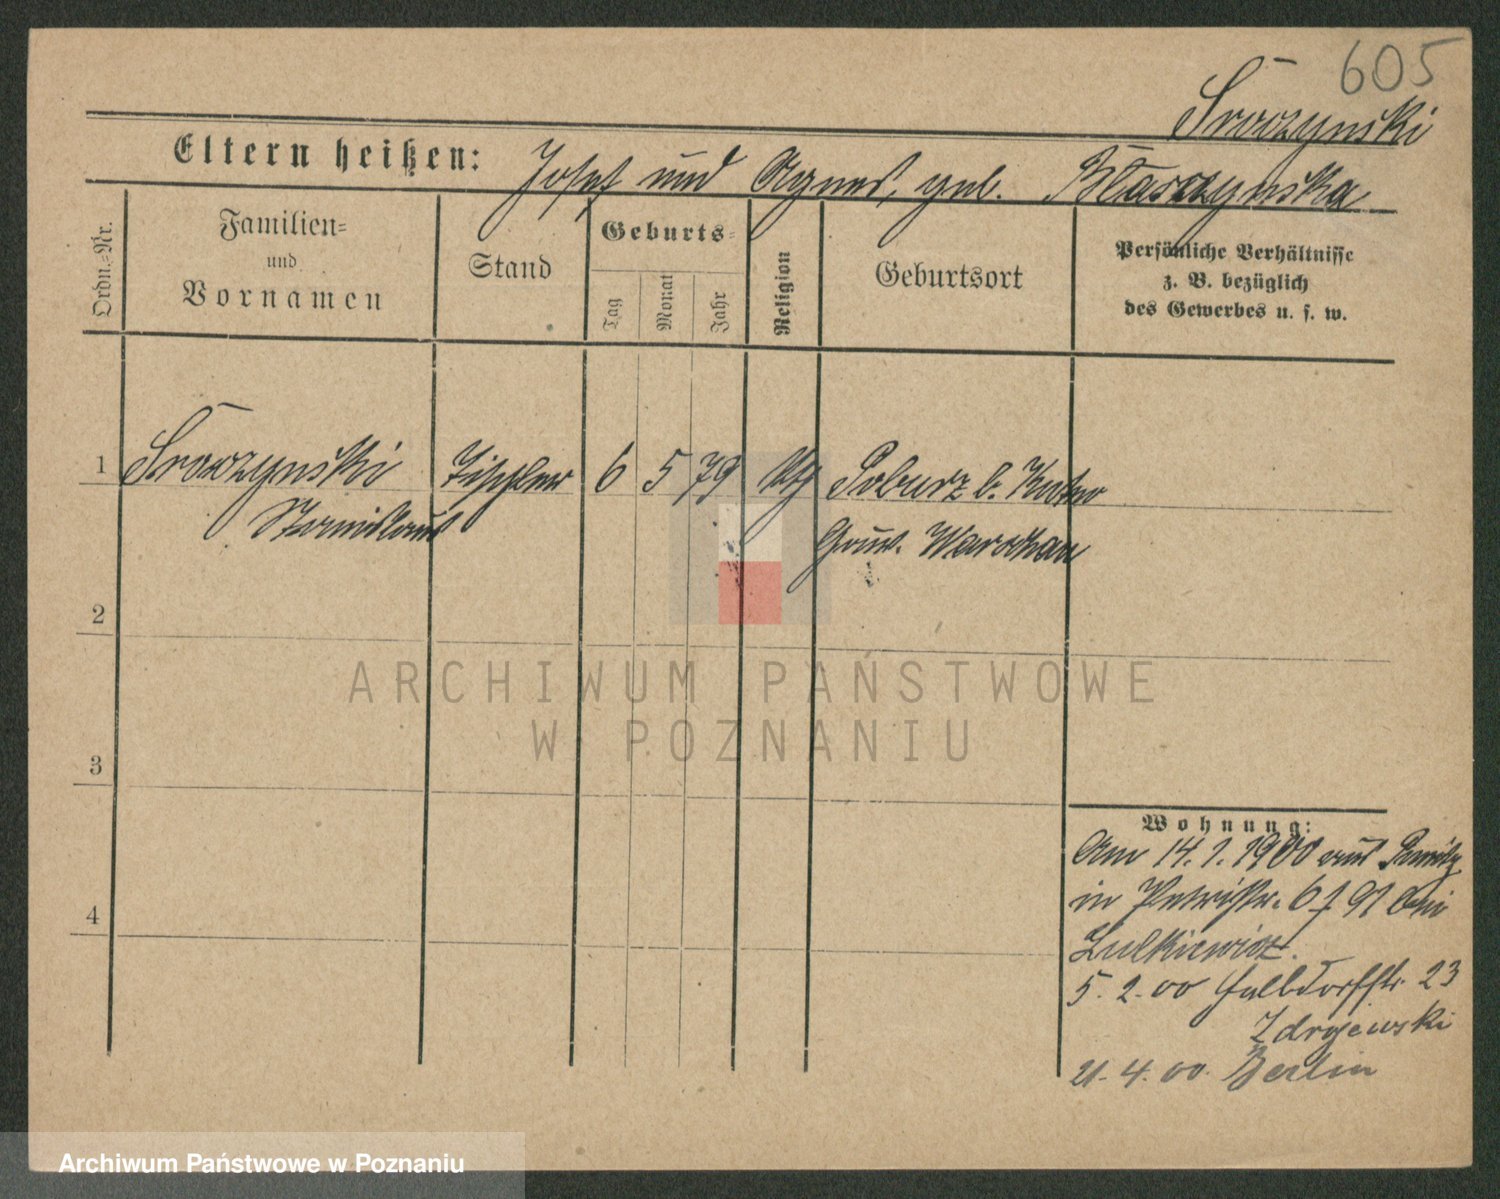 605
Sroczynski
Eltern heißen: Josef und Agnes, geb. Blaszczynska
Ordn.=Nr.
Familien=
und
Vornamen
Stand
Geburts=
Tag
Monat
Jahr
Religion
Geburtsort
Persönliche Verhältnisse
z. B. bezüglich
des Gewerbes u. s. w.
1 Sroczynski Tischler 6 5 79 kth b. Kutno
Stanislaus Gouv. Warschau
2
3
4
Wohnung:
Am 14. 1. 1900 aus
in Petristr. 6 bei
Lulkiewicz.
5. 2. 00 Halbdorfstr. 23
Zdrojewski
21. 4. 00. Berlin
ARCHIWUM PAŃSTWOWE
W POZNANIU
Archiwum Państwowe w Poznaniu